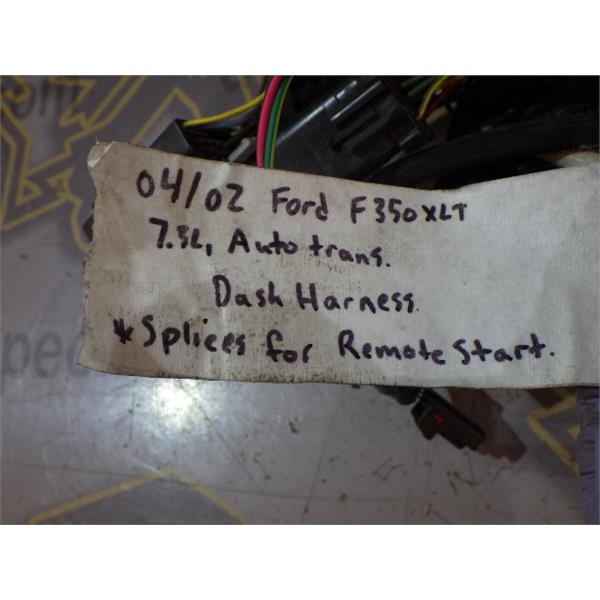 04/02 Ford F350XLT
7.3L, Auto trans.
Dash Harness.
*Splices for Remote Start.